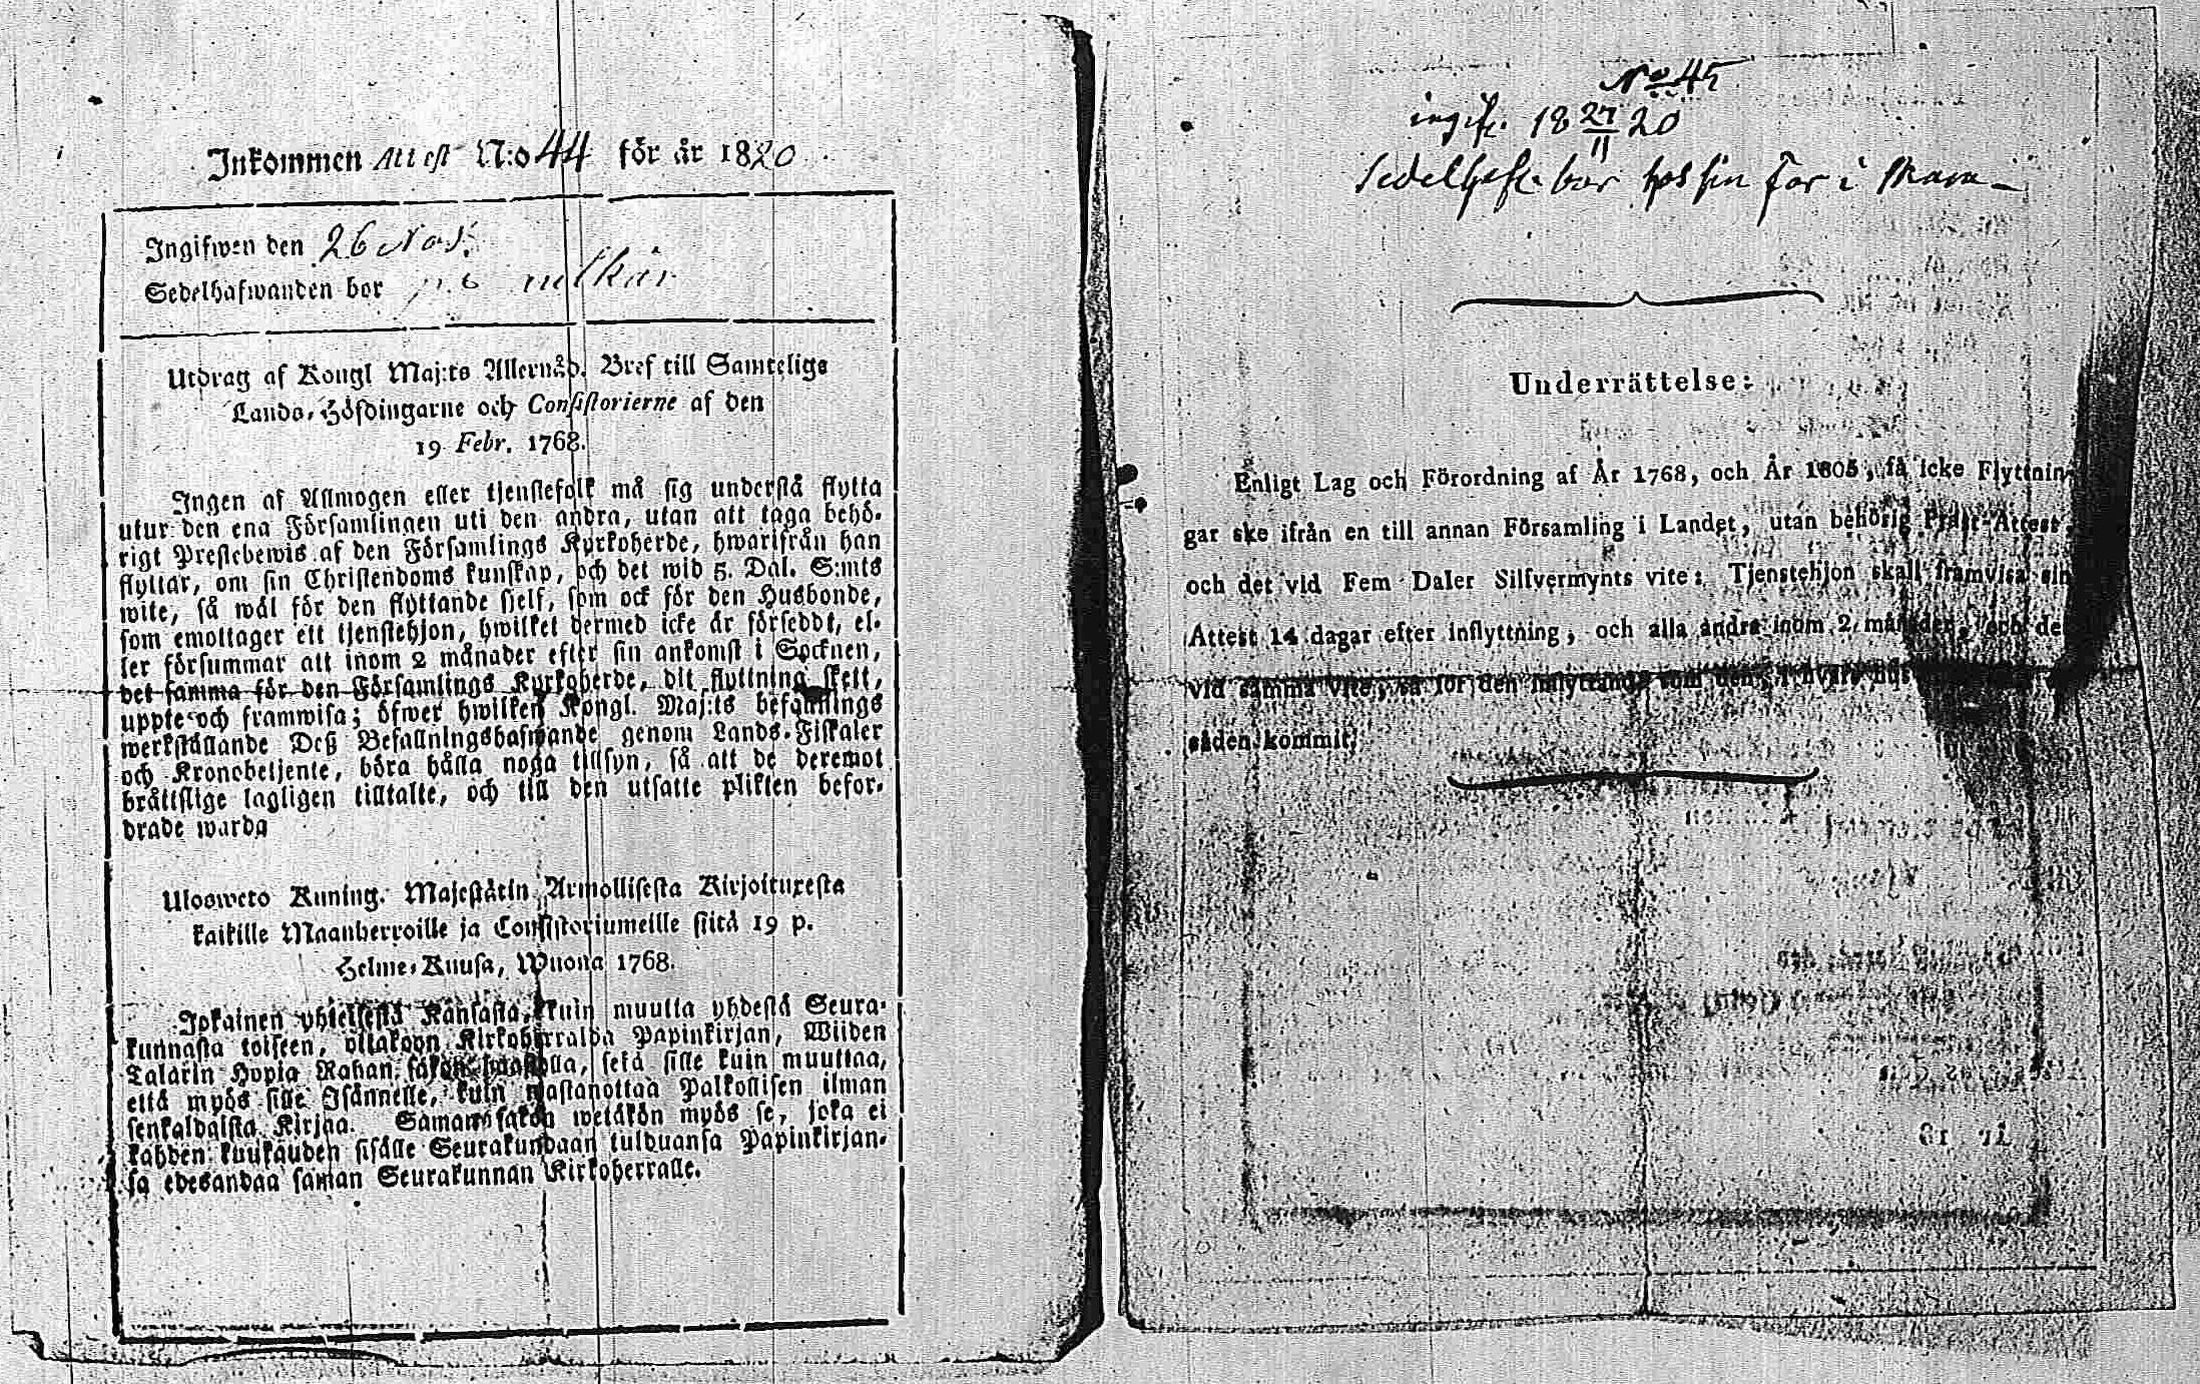 Inkommen Attest N:o 44 för år 1820
Ingifwen den 26 Nov.
Sedelhafwanden bor
Utdrag af Kongl Maj:ts Allernåd. Bref till Samtelige
Lands-Höfdingarne och Consistorierne af den
19 Febr. 1768.
Ingen af Allmogen eller tjenstefolk må sig understå flytta
utur den ena Församlingen uti den andra, utan att taga behö-
rigt Prestebewis af den Församlings Kyrkoherde, hwarifrån han
flyttar, om sin Christendoms kunskap, och det wid 5. Dal. S:mts
wite, så wäl för den flyttande sjelf, som ock för den Husbonde,
som emottager ett tjenstehjon, hwilket dermed icke är försedt, el-
ler försummar att inom 2 månader efter sin ankomst i Socknen,
det samma för den Församlings Kyrkoherde, dit flyttning skett,
uppte och framwisa; öfwer hwilken Kongl. Maj:ts befallnings
werkställande Deß Befallningshafwande genom Lands-Fiskaler
och Kronobetjente, böra hålla noga tillsyn, så att de deremot
bråttslige lagligen tilltalte, och till den utsatte plikten befor-
drade warda
Ulosweto Kuning. Majestätin Armollisesta Kirjoituxesta
kaikille Maanherroille ja Consistoriumeille siitä 19 p.
Helme-Kuusa, Wuona 1768.
Jokainen yhteisestä Kansasta, kuin muutta yhdestä Seura-
kunnasta toiseen, ottakoon Kirkoherralda Papinkirjan, Wiiden
Talarin Hopia Rahan sakon haastolla, sekä sille kuin muuttaa,
että myös sille Isännelle, kuin wastanottaa Palkollisen ilman
senkaldaista Kirjaa. Saman sakon wetäkön myös se, joka ei
kahden kuukauden sisälle Seurakundaan tulduansa Papinkirjan-
sa edesandaa saman Seurakunnan Kirkoherralle.
No 45
ingif. 18 27/11 20
Sedelhafv. bor hos sin far i
Underrättelse:
Enligt Lag och Förordning af År 1768, och År 1805, få icke Flyttnin-
gar ske ifrån en till annan Församling i Landet, utan behörig Präst-Attest,
och det vid Fem Daler Silfvermynts vite: Tjenstehjon skall framvisa sin
Attest 14 dagar efter inflyttning, och alla andra inom 2 månader, och det
vid samma vite, så för den inflyttande som den, i hvars hus
såden kommit.